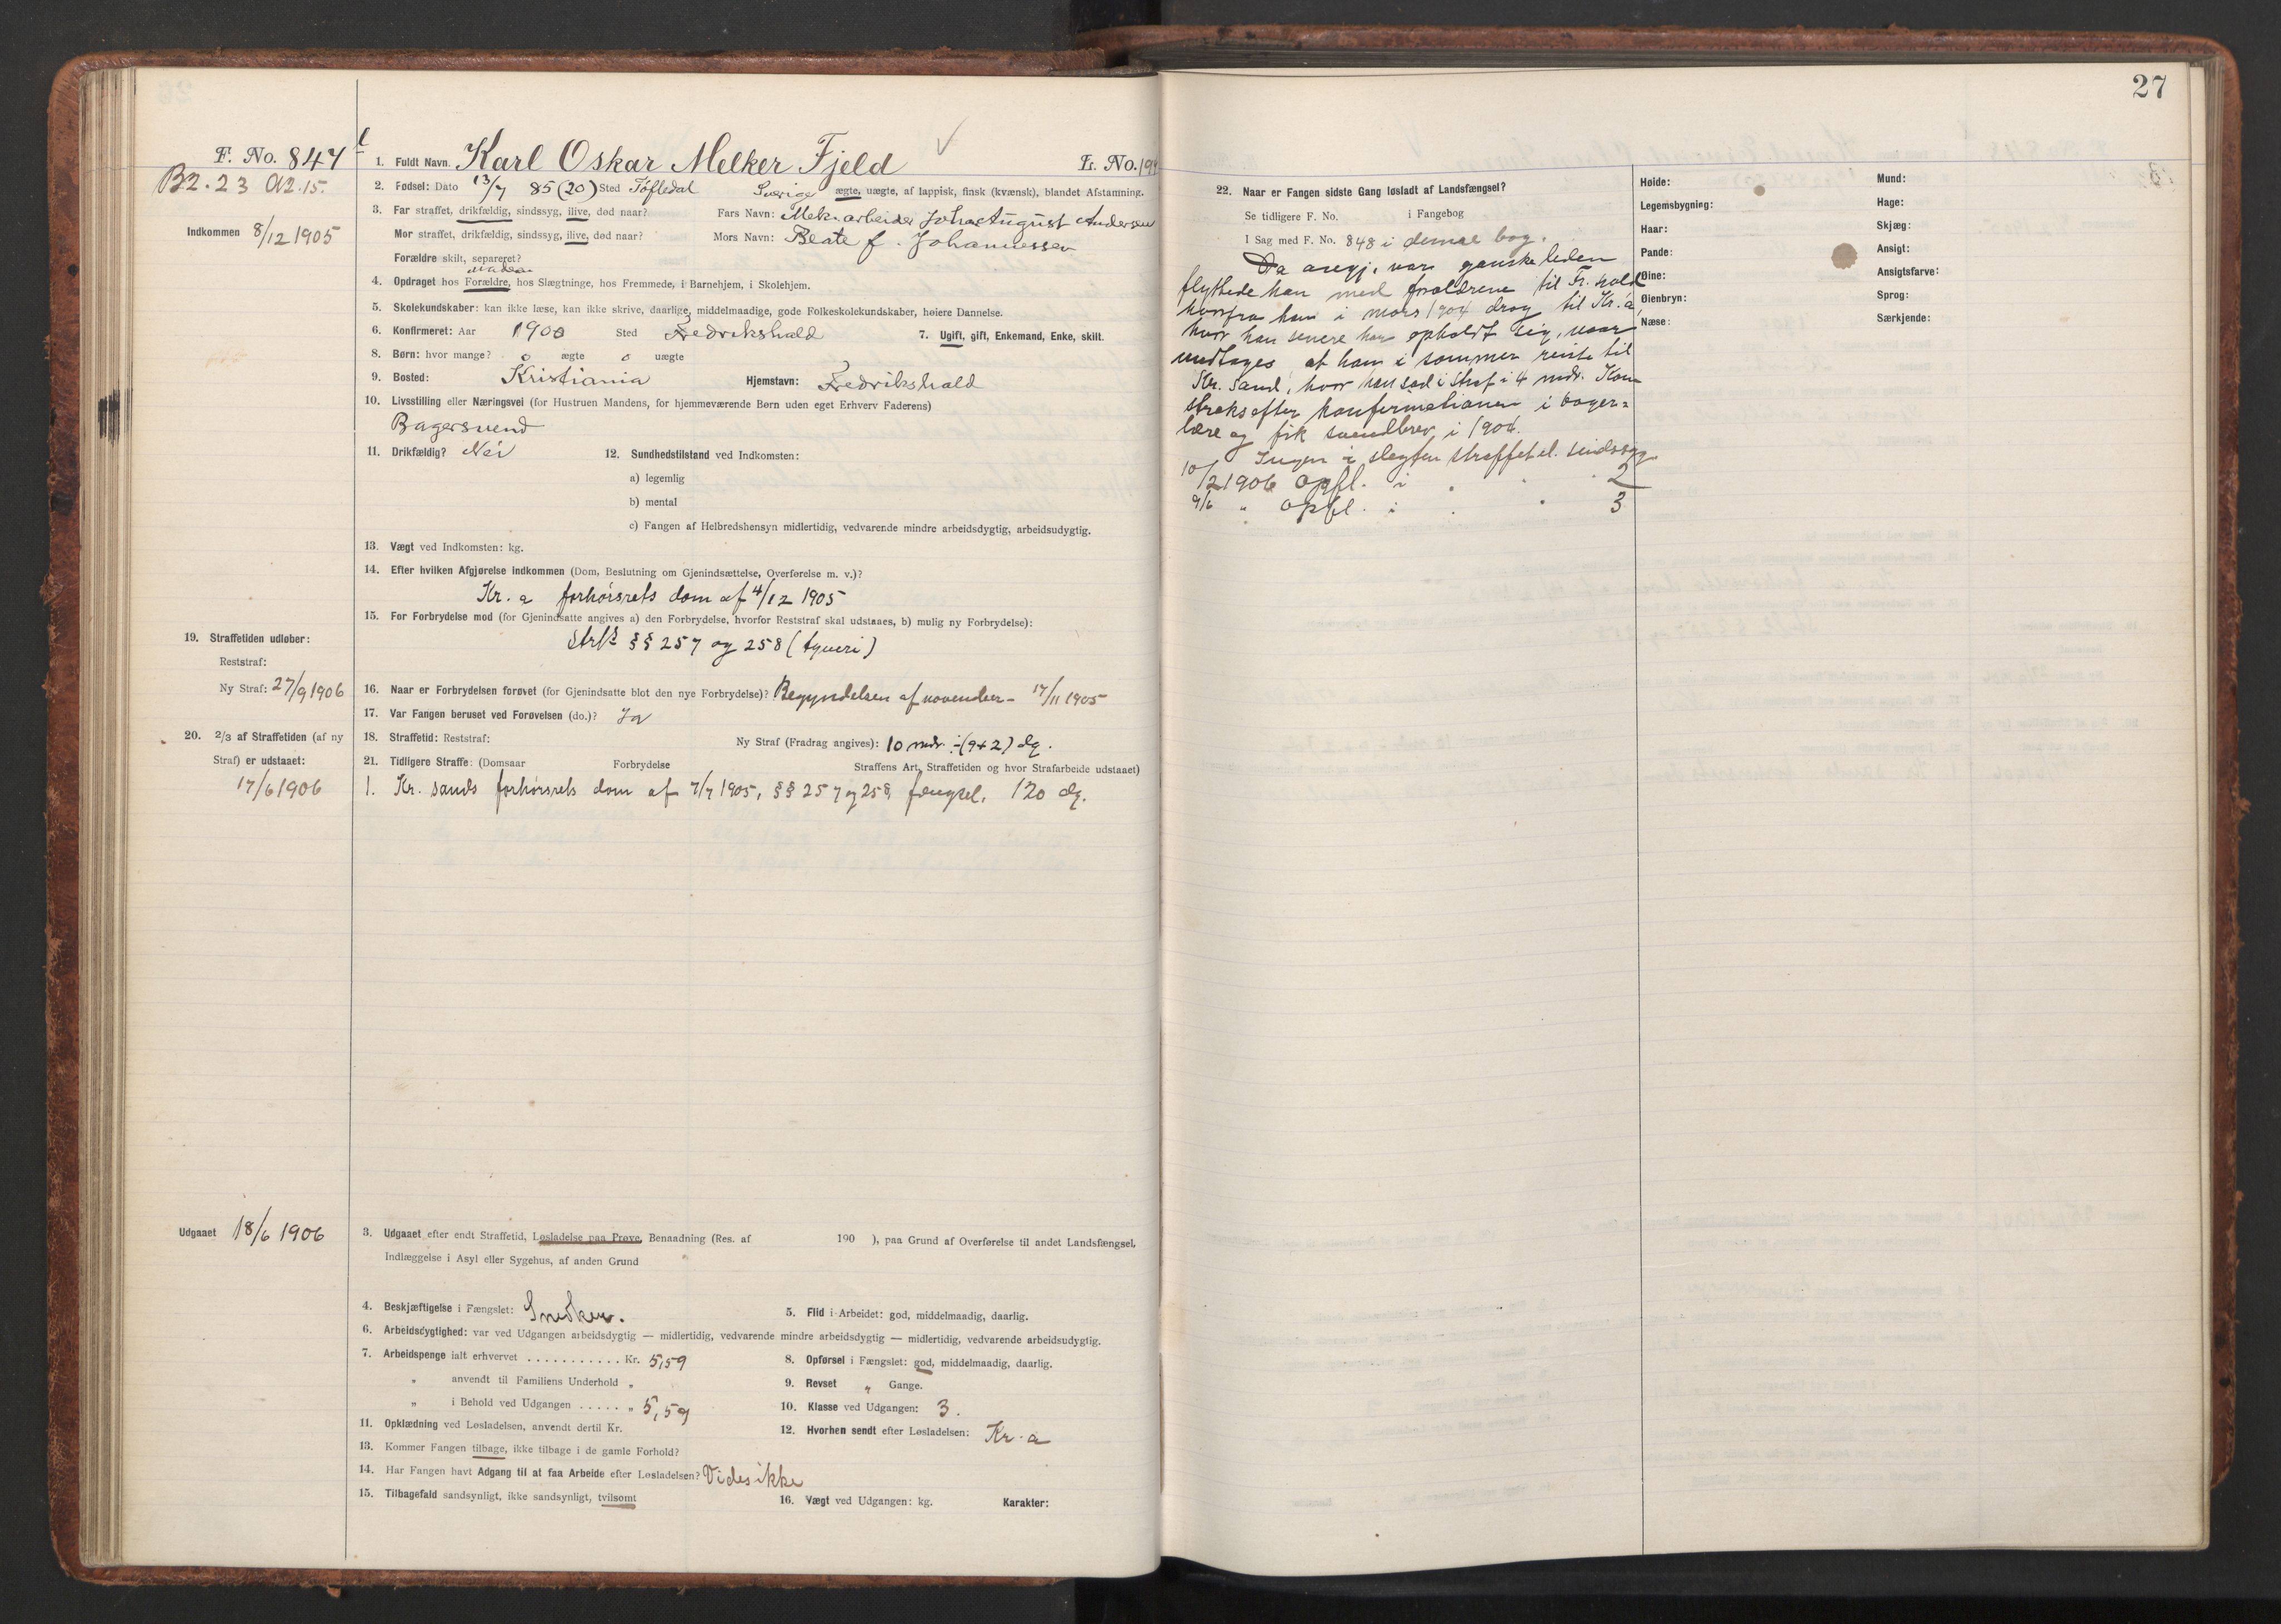 27
F. No. 847
B2. 23 A2. 15.
Indkommen 8/12 1905
1. Fuldt Navn. Karl Oskar Melker Fjeld L. No. 194
2. Fødsel: Dato 13/7 85 (20) Sted Tøfledal Sverige ægte, uægte, af lappisk, finsk (kvænsk), blandet Afstamning.
3. Far straffet, drikfældig, sindssyg, ilive, død naar? Fars Navn: Mek. arbeider Johan August Andersen
Mor straffet, drikfældig, sindssyg, ilive, død naar? Mors Navn: Beate f. Johannessen
Forældre skilt, separeret?
4. Opdraget hos Forældre, hos Slægtninge, hos Fremmede, i Barnehjem, i Skolehjem.
5. Skolekundskaber: kan ikke læse, kan ikke skrive, daarlige, middelmaadige, gode Folkeskolekundskaber, høiere Dannelse.
6. Konfirmeret: Aar 1900 Sted Fredrikshald 7. Ugift, gift, Enkemand, Enke, skilt.
8. Børn: hvor mange? 0 ægte 0 uægte
9. Bosted: Kristiania Hjemstavn: Fredrikshald
10. Livsstilling eller Næringsvei (for Hustruen Mandens, for hjemmeværende Børn uden eget Erhverv Faderens)
Bagersvend
11. Drikfældig? Nei 12. Sundhedstilstand ved Indkomsten:
a) legemlig
b) mental
c) Fangen af Helbredshensyn midlertidig, vedvarende mindre arbeidsdygtig, arbeidsudygtig.
13. Vægt ved Indkomsten: kg.
14. Efter hvilken Afgjørelse indkommen (Dom, Beslutning om Gjenindsættelse, Overførelse m. v.)?
Kr. a forhørsrets dom af 4/12 1905
15. For Forbrydelse mod (for Gjenindsatte angives a) den Forbrydelse, hvorfor Reststraf skal udstaaes, b) mulig ny Forbrydelse):
Strfl §§ 257 og 258 (tyveri)
19. Straffetiden udløber:
Reststraf:
Ny Straf: 27/9 1906
16. Naar er Forbrydelsen forøvet (for Gjenindsatte blot den nye Forbrydelse)? Begyndelsen af november - 17/11 1905
17. Var Fangen beruset ved Forøvelsen (do.)? Ja
20. 2/3 af Straffetiden (af ny
Straf) er udstaaet:
17/6 1906
18. Straffetid: Reststraf: Ny Straf (Fradrag angives): 10 mdr. ÷ (9+2) dg.
21. Tidligere Straffe: (Domsaar Forbrydelse Straffens Art, Straffetiden og hvor Strafarbeide udstaaet)
1. Kr. sands forhørsrets dom af 7/7 1905, §§ 257 og 258, fængsel, 120 dg.
Udgaaet 18/6 1906
3. Udgaaet efter endt Straffetid, Løsladelse paa Prøve, Benaadning (Res. af 190 ), paa Grund af Overførelse til andet Landsfængsel,
Indlæggelse i Asyl eller Sygehus, af anden Grund
4. Beskjæftigelse i Fængslet: Snedker.
5. Flid i Arbeidet: god, middelmaadig, daarlig.
6. Arbeidsdygtighed: var ved Udgangen arbeidsdygtig — midlertidig, vedvarende mindre arbeidsdygtig — midlertidig, vedvarende arbeidsudygtig.
7. Arbeidspenge ialt erhvervet . . . . . . . . . . . Kr. 5,59
8. Opførsel i Fængslet: god, middelmaadig, daarlig.
" anvendt til Familiens Underhold "
9. Revset " Gange.
" i Behold ved Udgangen . . . . . " 5,59
10. Klasse ved Udgangen: 3.
11. Opklædning ved Løsladelsen, anvendt dertil Kr.
12. Hvorhen sendt efter Løsladelsen: Kr. a
13. Kommer Fangen tilbage, ikke tilbage i de gamle Forhold?
14. Har Fangen havt Adgang til at faa Arbeide efter Løsladelsen? Vides ikke
15. Tilbagefald sandsynligt, ikke sandsynligt, tvilsomt
16. Vægt ved Udgangen: kg. Karakter:
22. Naar er Fangen sidste Gang løsladt af Landsfængsel?
Se tidligere F. No. i Fangebog
I Sag med F. No. 848 i denne bog.
Da ganske liden
flyttede han med forældrene til Fr. hald
hvorfra han i mars 1904 drog til Kr. a,
hvor han senere har opholdt sig, naar
undtages at han i sommer reiste til
Kr. sand, hvor han sad i straf i 4 mdr. Kom
straks efter konfirmationen i bager-
lære og fik svendbrev i 1904.
Ingen i slegten straffet el. sindssyg.
10/2 1906 Opfl. i " " 2
9/6 " Opfl. i " " 3
Høide:
Legemsbygning:
Haar:
Pande:
Øine:
Øienbryn:
Næse:
Mund:
Hage:
Skjæg:
Ansigt:
Ansigtsfarve:
Sprog:
Særkjende: